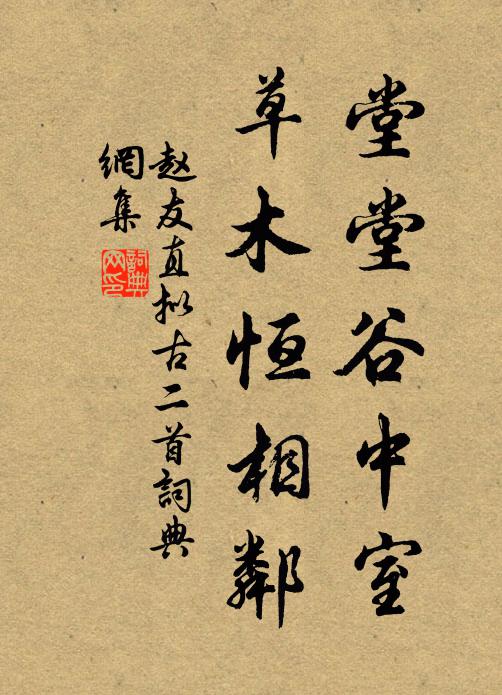 堂堂谷中室
草木恒相鄰
赵友直拟古二首詞典
網集
詞典
网印